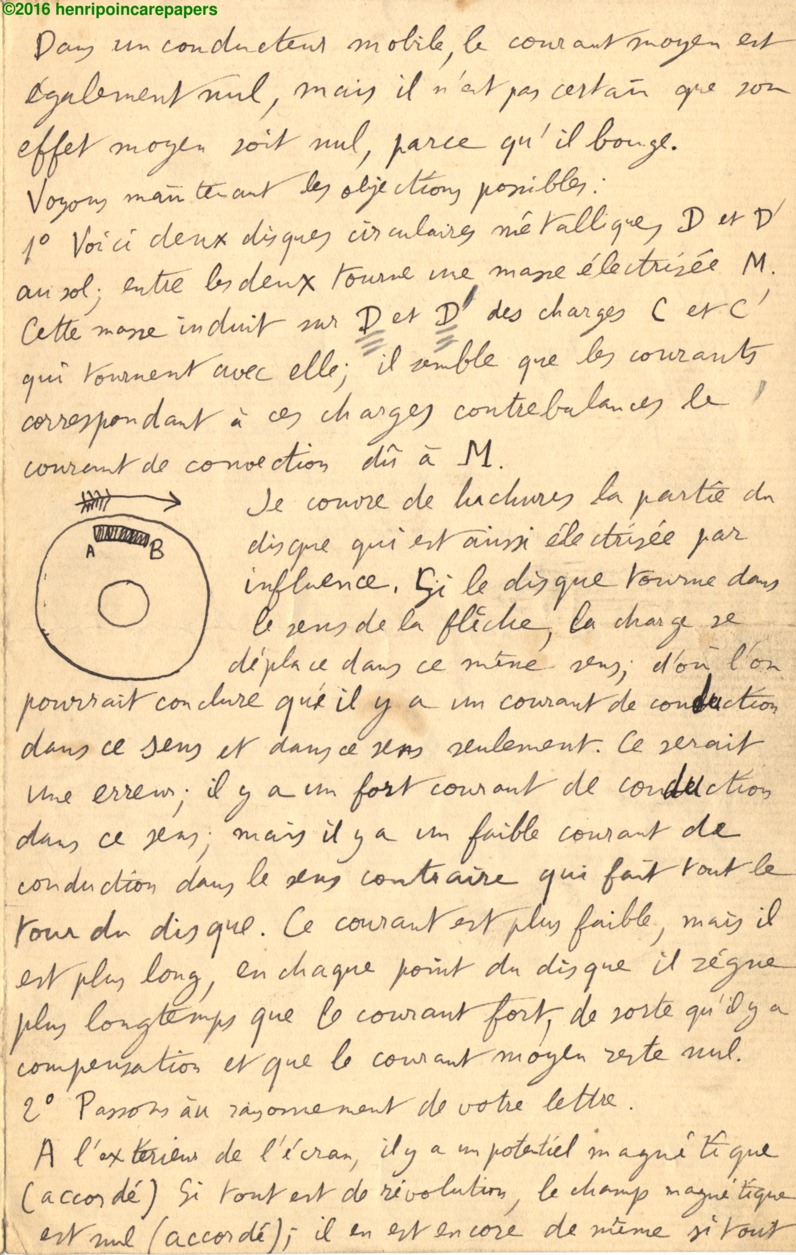 ©2016 henripoincarepapers
Dans un conducteur mobile, le courant moyen est
également nul, mais il n'est pas certain que son
effet moyen soit nul, parce qu'il bouge.
Voyons maintenant les objections possibles :
1° Voici deux disques circulaires métalliques D et D'
au sol ; entre les deux tourne une masse électrisée M.
Cette masse induit sur D et D' des charges C et C'
qui tournent avec elle ; il semble que les courants
correspondant à ces charges contrebalances le
courant de convection dû à M.
Je couvre de hachures la partie du
A B
disque qui est ainsi électrisée par
influence. Si le disque tourne dans
le sens de la flêche, la charge se
déplace dans ce même sens ; d'où l'on
pourrait conclure qu'il y a un courant de conduction
dans ce sens et dans ce sens seulement. Ce serait
une erreur ; il y a un fort courant de conduction
dans ce sens ; mais il y a un faible courant de
conduction dans le sens contraire qui fait tout le
tour du disque. Ce courant est plus faible, mais il
est plus long, en chaque point du disque il règne
plus longtemps que le courant fort, de sorte qu'il y a
compensation et que le courant moyen reste nul.
2° Passons au raisonnement de votre lettre.
A l'extérieur de l'écran, il y a un potentiel magnétique
(accordé) Si tout est de révolution, le champ magnétique
est nul (accordé) ; il en est encore de même si tout